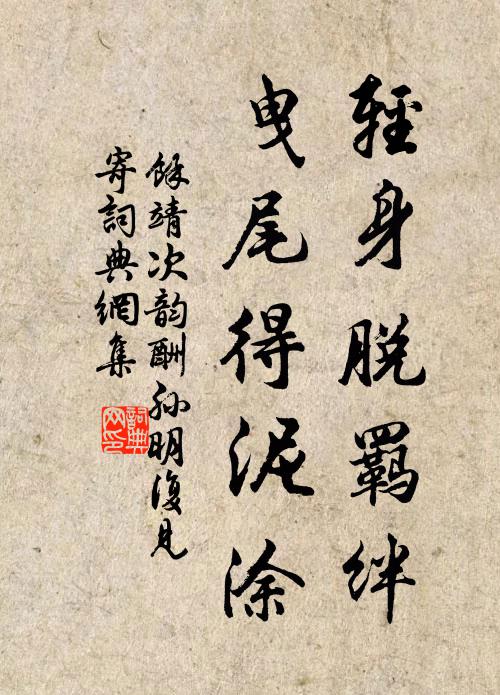 輕身脫羈絆
曳尾得泥涂
餘靖次韵酬孙明復見
寄詞典網集
詞典網印